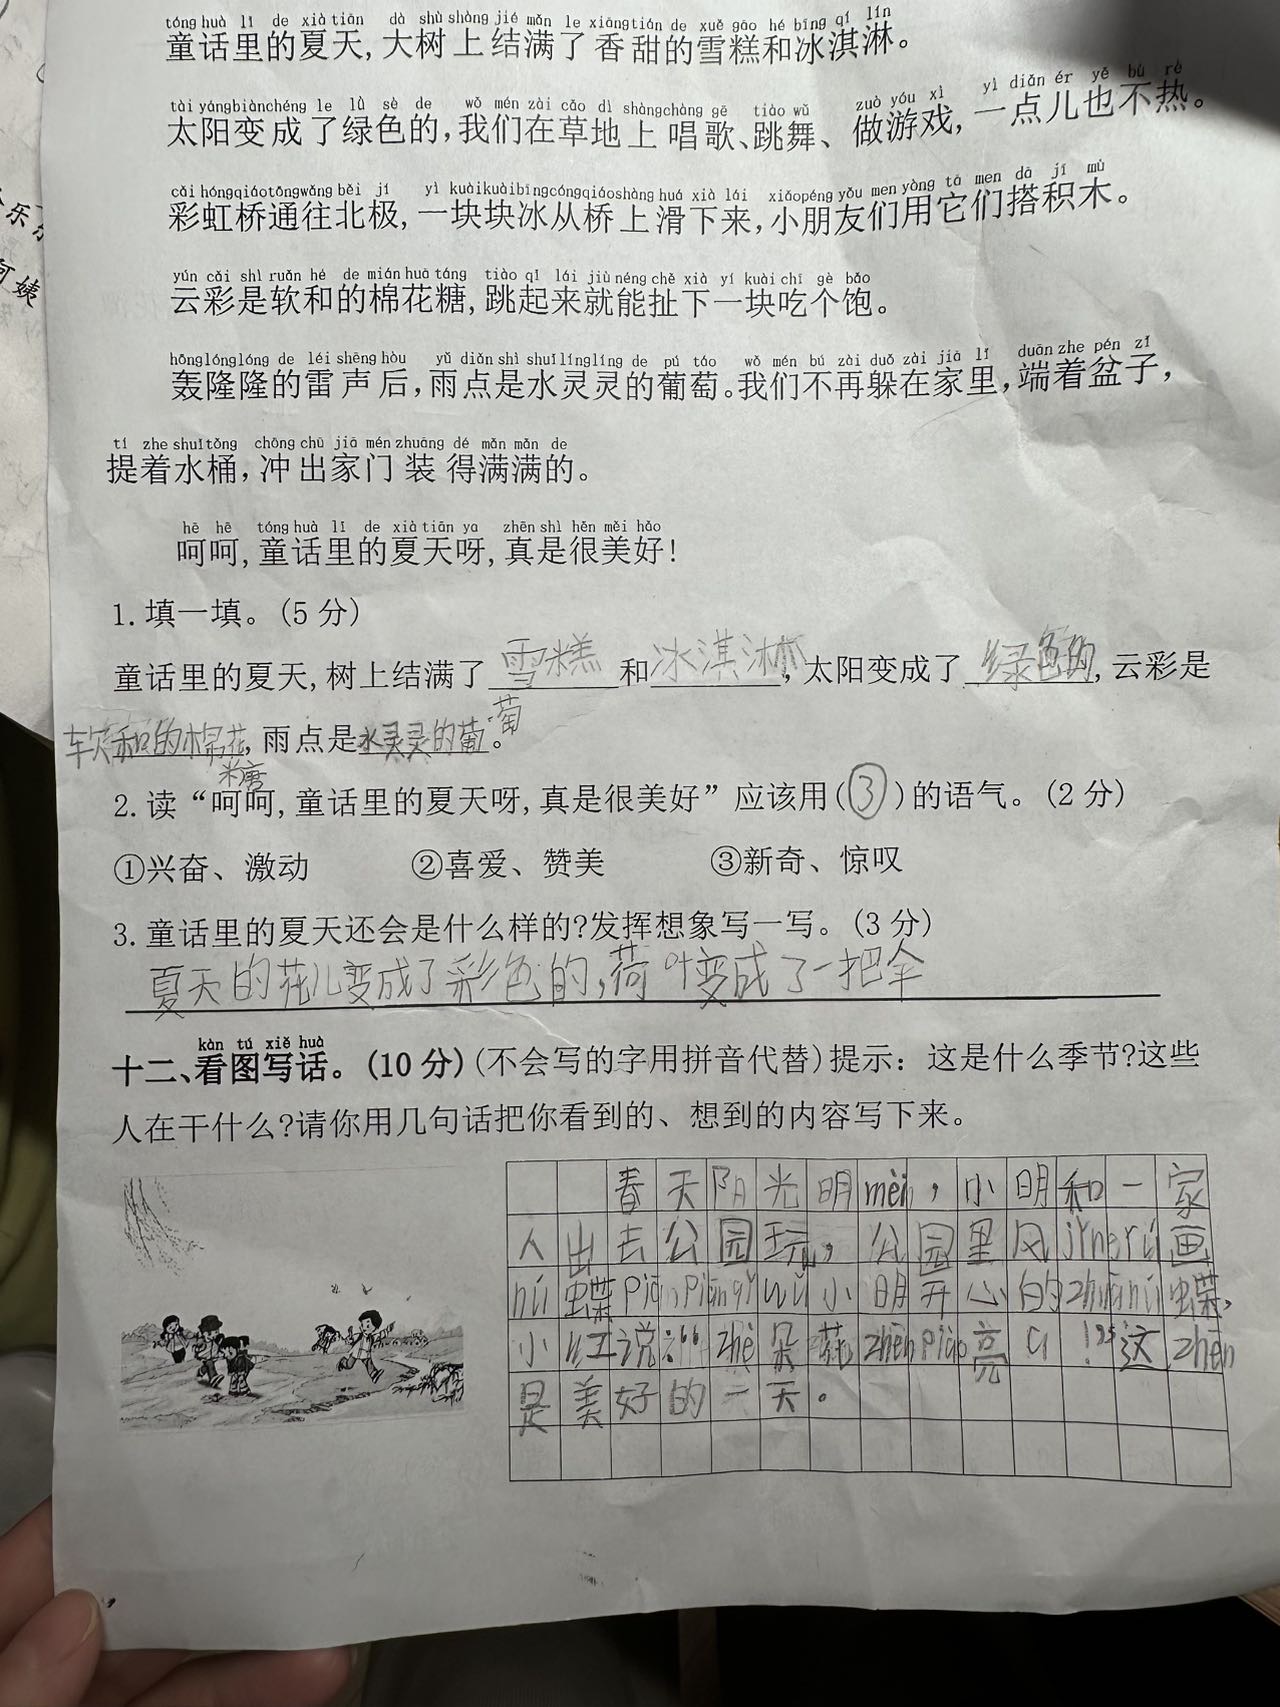 tóng huà lǐ de xià tiān dà shù shàng jié mǎn le xiāng tián de xuě gāo hé bīng qí lín
童话里的夏天,大树上结满了香甜的雪糕和冰淇淋。
tài yáng biàn chéng le lǜ sè de wǒ mén zài cǎo dì shàng chàng gē tiào wǔ zuò yóu xì yì diǎn ér yě bú rè
太阳变成了绿色的,我们在草地上唱歌、跳舞、做游戏,一点儿也不热。
cǎi hóng qiáo tōng wǎng běi jí yì kuài kuài bīng cóng qiáo shàng huá xià lái xiǎo péng yǒu men yòng tā men dā jī mù
彩虹桥通往北极,一块块冰从桥上滑下来,小朋友们用它们搭积木。
yún cǎi shì ruǎn hé de mián huā táng tiào qǐ lái jiù néng chě xià yí kuài chī gè bǎo
云彩是软和的棉花糖,跳起来就能扯下一块吃个饱。
hōng lóng lóng de léi shēng hòu yǔ diǎn shì shuǐ líng líng de pú táo wǒ mén bú zài duǒ zài jiā lǐ duān zhe pén zǐ
轰隆隆的雷声后,雨点是水灵灵的葡萄。我们不再躲在家里,端着盆子,
tí zhe shuǐ tǒng chōng chū jiā mén zhuāng dé mǎn mǎn de
提着水桶,冲出家门装得满满的。
hē hē tóng huà lǐ de xià tiān ya zhēn shì hěn měi hǎo
呵呵,童话里的夏天呀,真是很美好!
1.填一填。(5分)
童话里的夏天,树上结满了雪糕和冰淇淋,太阳变成了绿色的,云彩是
软和的棉花糖,雨点是水灵灵的葡萄。
2.读“呵呵,童话里的夏天呀,真是很美好”应该用(③)的语气。(2分)
①兴奋、激动 ②喜爱、赞美 ③新奇、惊叹
3.童话里的夏天还会是什么样的?发挥想象写一写。(3分)
夏天的花儿变成了彩色的,荷叶变成了一把伞
kàn tú xiě huà
十二、看图写话。(10分)(不会写的字用拼音代替)提示:这是什么季节?这些
人在干什么?请你用几句话把你看到的、想到的内容写下来。
春天阳光明mèi,小明和一家
人出去公园玩,公园里风jǐng rú画
hú蝶piān piān qǐ wǔ小明开心的zhuī hú蝶,
小红说:“zhè朵花zhēn piào亮a!”这zhēn
是美好的一天。